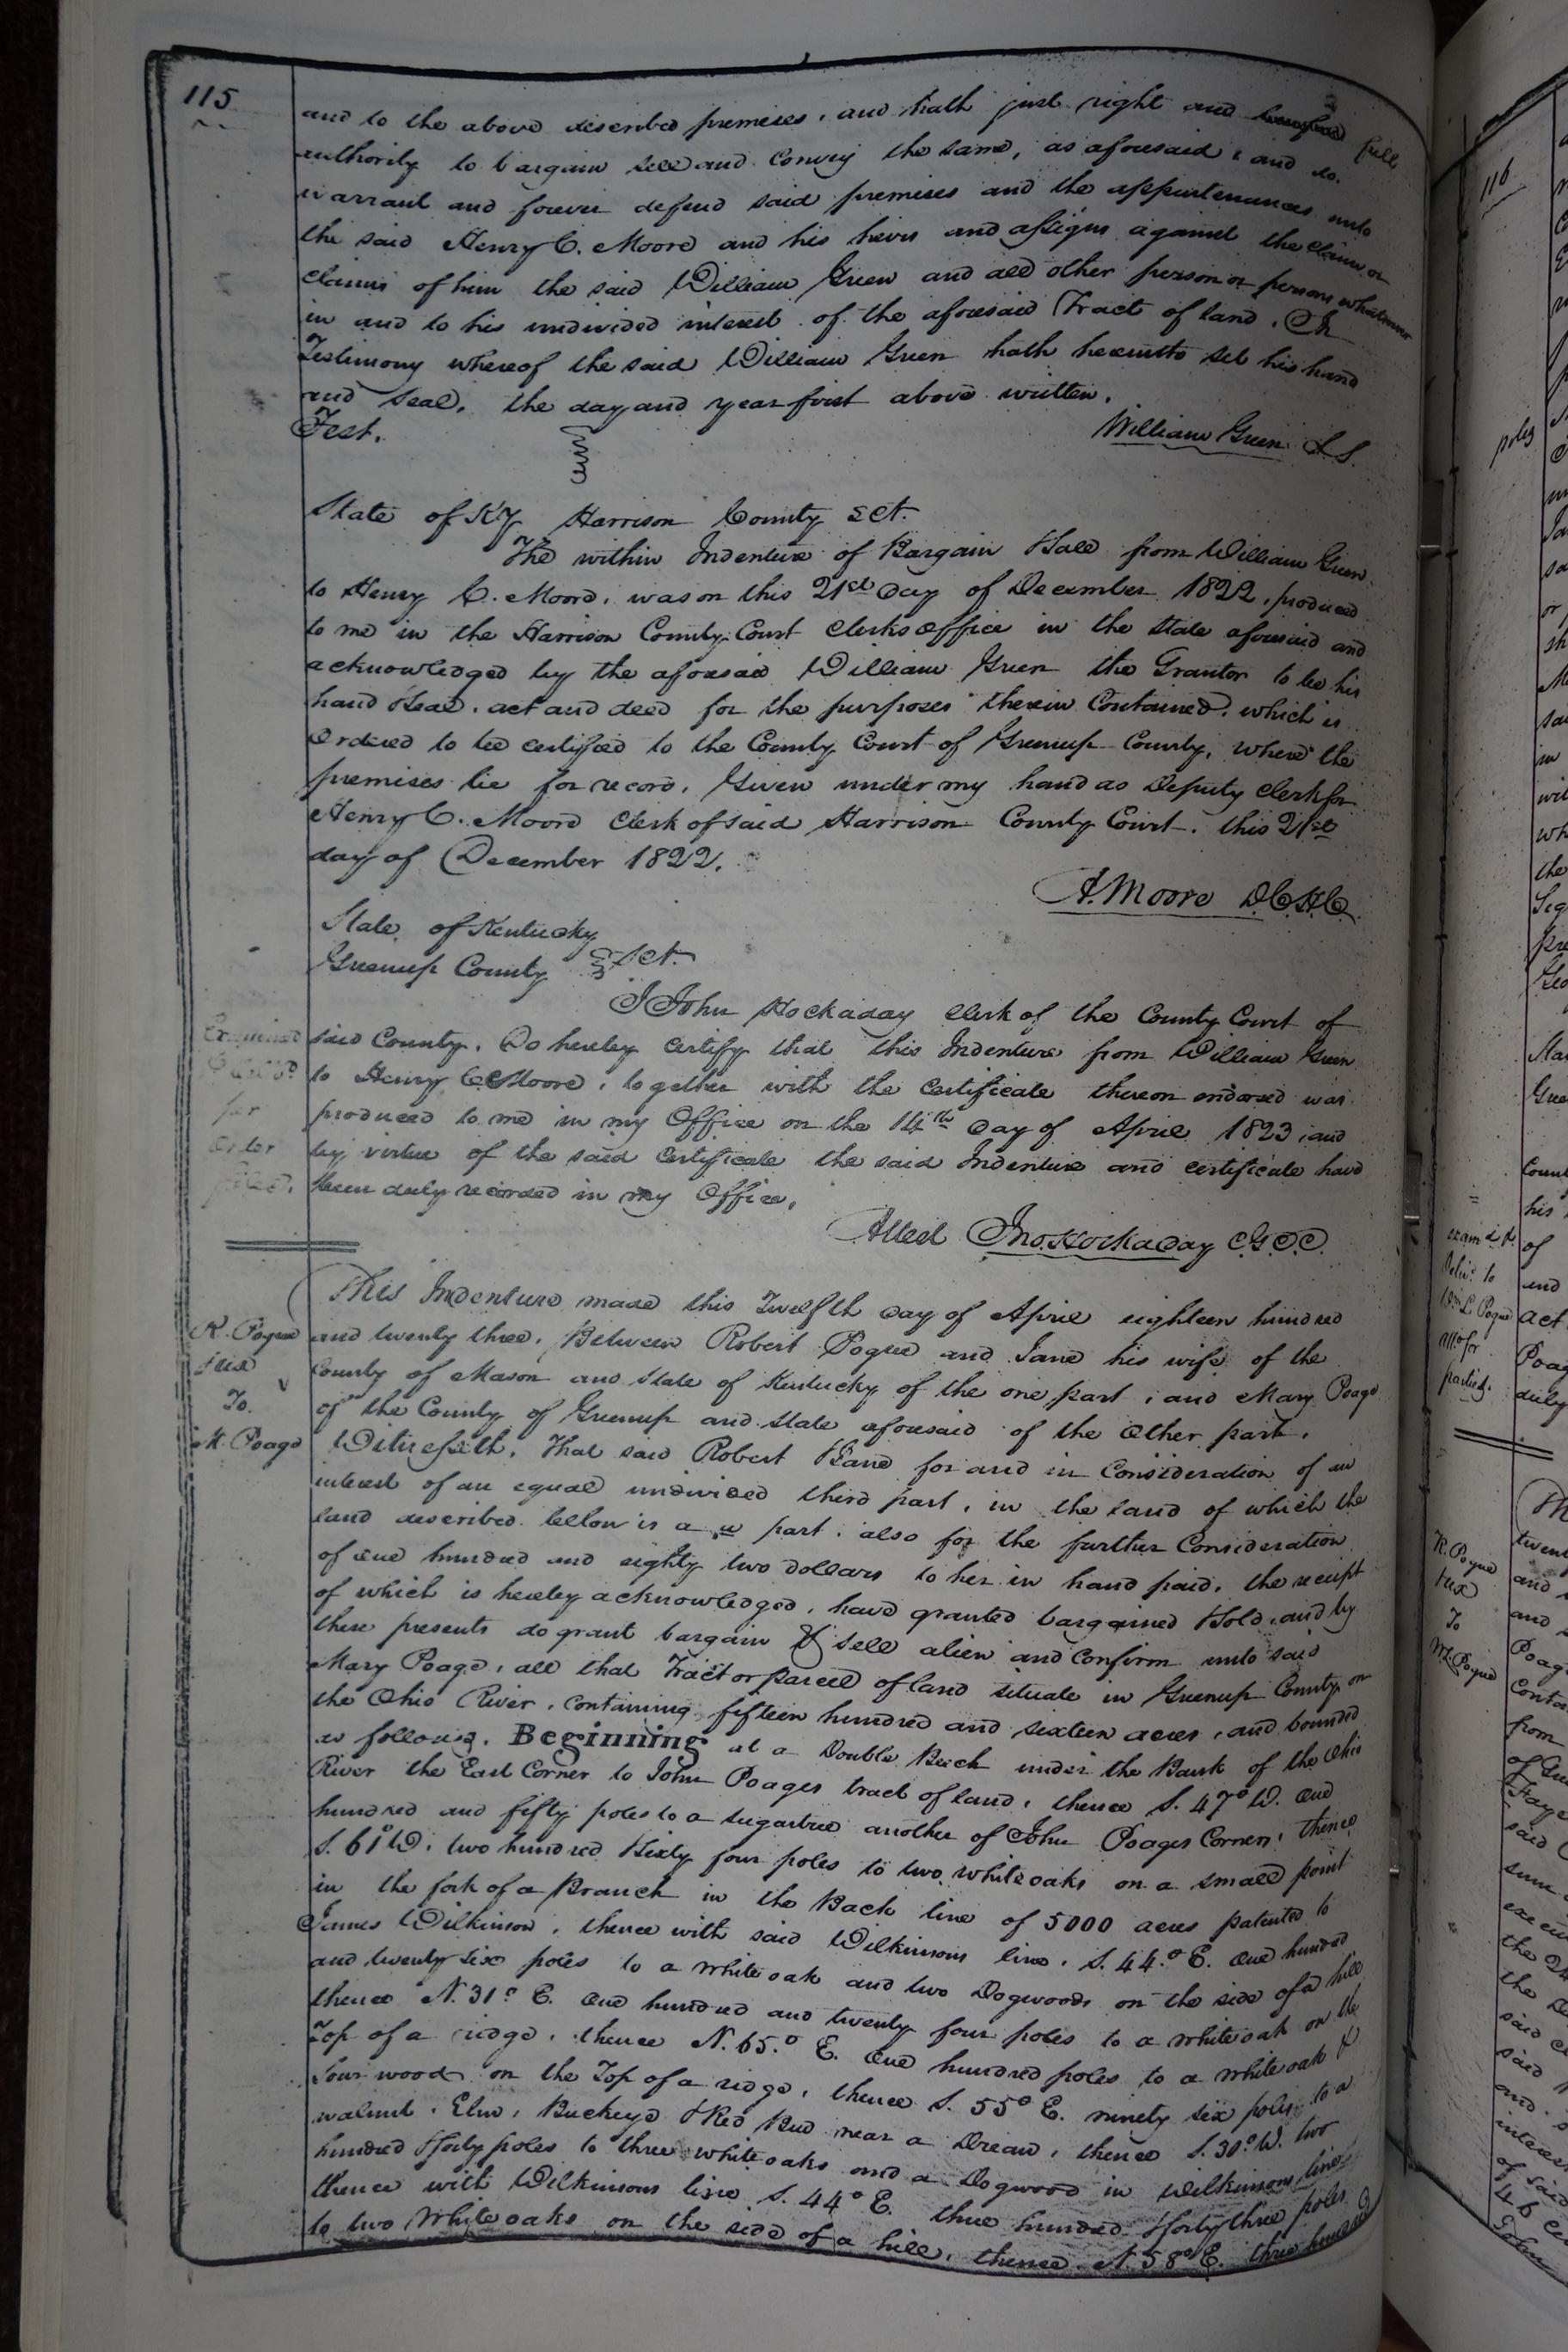 115
and to the above described premises, and hath just right and full
authority to bargain sell and convey the same, as aforesaid, and do.
warrant and forever defend said premises and the appurtenances unto
the said Henry C. Moore and his heirs and assigns against the claim or
claims of him the said William Green and all other person or persons whatsoever
in and to his undivided interest of the aforesaid Tract of land. In
Testimony whereof the said William Green hath hereunto set his hand
and seal, the day and year first above written.
Test.
William Green L.S.
State of KY Harrison County sct.
The within Indenture of Bargain &Sale from William Green
to Henry C. Moore, was on this 21st Day of December 1822, produced
to me in the Harrison County Court Clerks office in the State aforesaid and
acknowledged by the aforesaid William Green the Grantor to be his
hand &seal, act and deed for the purposes therein Contained, which is
Ordered to be certified to the County Court of Greenup County, where the
premises lie for record. Given under my hand as Deputy Clerk for
Henry C. Moore Clerk of said Harrison County Court. this 21st
day of December 1822.
A. Moore D.C.H.C.
State of Kentucky
Greenup County sct.
I John Hockaday Clerk of the County Court of
said County, Do hereby Certify that this Indenture from William Green
to Henry C Moore, together with the Certificate thereon endorsed was
produced to me in my Office on the 14th Day of April 1823, and
by virtue of the said Certificate the said Indenture and certificate have
been duly recorded in my Office.
Examined
per
order
Attest Jno. Hockaday C.G.C.C.
This Indenture made this Twelfth Day of April eighteen hundred
and twenty three, Between Robert Pogue and Jane his wife of the
County of Mason and State of Kentucky of the one part, and Mary Poage
of the County of Greenup and State aforesaid of the other part.
Witnesseth, That said Robert &Jane for and in Consideration of an
interest of an equal undivided third part, in the land of which the
land described bellow is a part, also for the further Consideration
of one hundred and eighty two dollars to her in hand paid, the receipt
of which is hereby acknowledged, have granted bargained &sold, and by
these presents do grant bargain & sell alien and Confirm unto said
Mary Poage, all that Tract or parcel of land situate in Greenup County on
the Ohio River, containing fifteen hundred and sixteen acres, and bounded
as follows, Beginning at a Double Beech under the Bank of the Ohio
River the East Corner to John Poages tract of land, thence S. 47° W. One
hundred and fifty poles to a sugartree another of John Poages Corners, thence
S. 61° W. two hundred &sixty four poles to two white oaks on a small point
in the fork of a Branch in the Back line of 5000 acres patented to
James Wilkinson, thence with said Wilkinsons line, S. 44.° E. One hundred
and twenty six poles to a white oak and two Dogwoods on the side of a hill
thence N. 31° E. One hundred and twenty four poles to a white oak on the
Top of a ridge, thence N. 65.° E. One hundred poles to a white oak &
Sour wood on the Top of a ridge, thence S. 55° E. ninety six poles to a
walnut, Elm, Buckeye &Red Bud near a Drean, thence S. 30° W. two
hundred &forty poles to three white oaks and a Dogwood in Wilkinsons line
thence with Wilkinsons line S. 44° E. three hundred &forty three poles
to two white oaks on the side of a hill, thence N. 58° E. three hundred
R. Pogue
&ux
To.
M. Poage
116
poles
examd &
Deliv. to
Wm L. Pogue
atto for
parties.
R. Pogue
&ux
To
M. Pogue